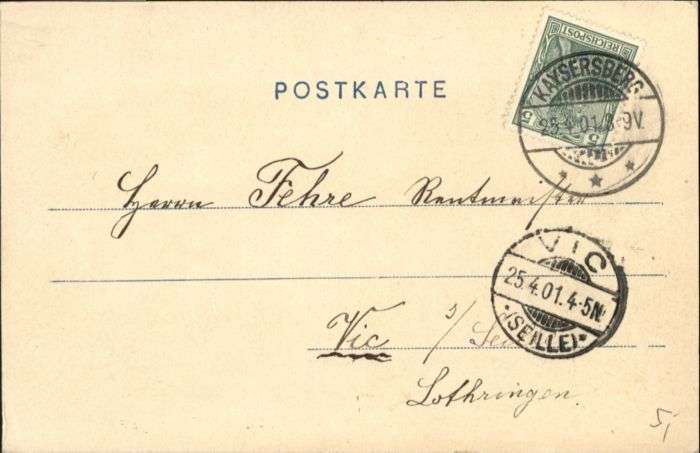 REICHSPOST
5 5
KAYSERSBERG
25.4.01.8-9V.
POSTKARTE
Herrn Fehre Rentmeister
VIC
25.4.01.4-5N.
(SEILLE)
Vic s/Seille
Lothringen.
5,